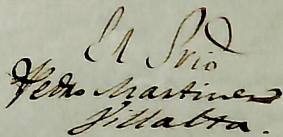 El Srio
Pedro Martinez
Villalta.